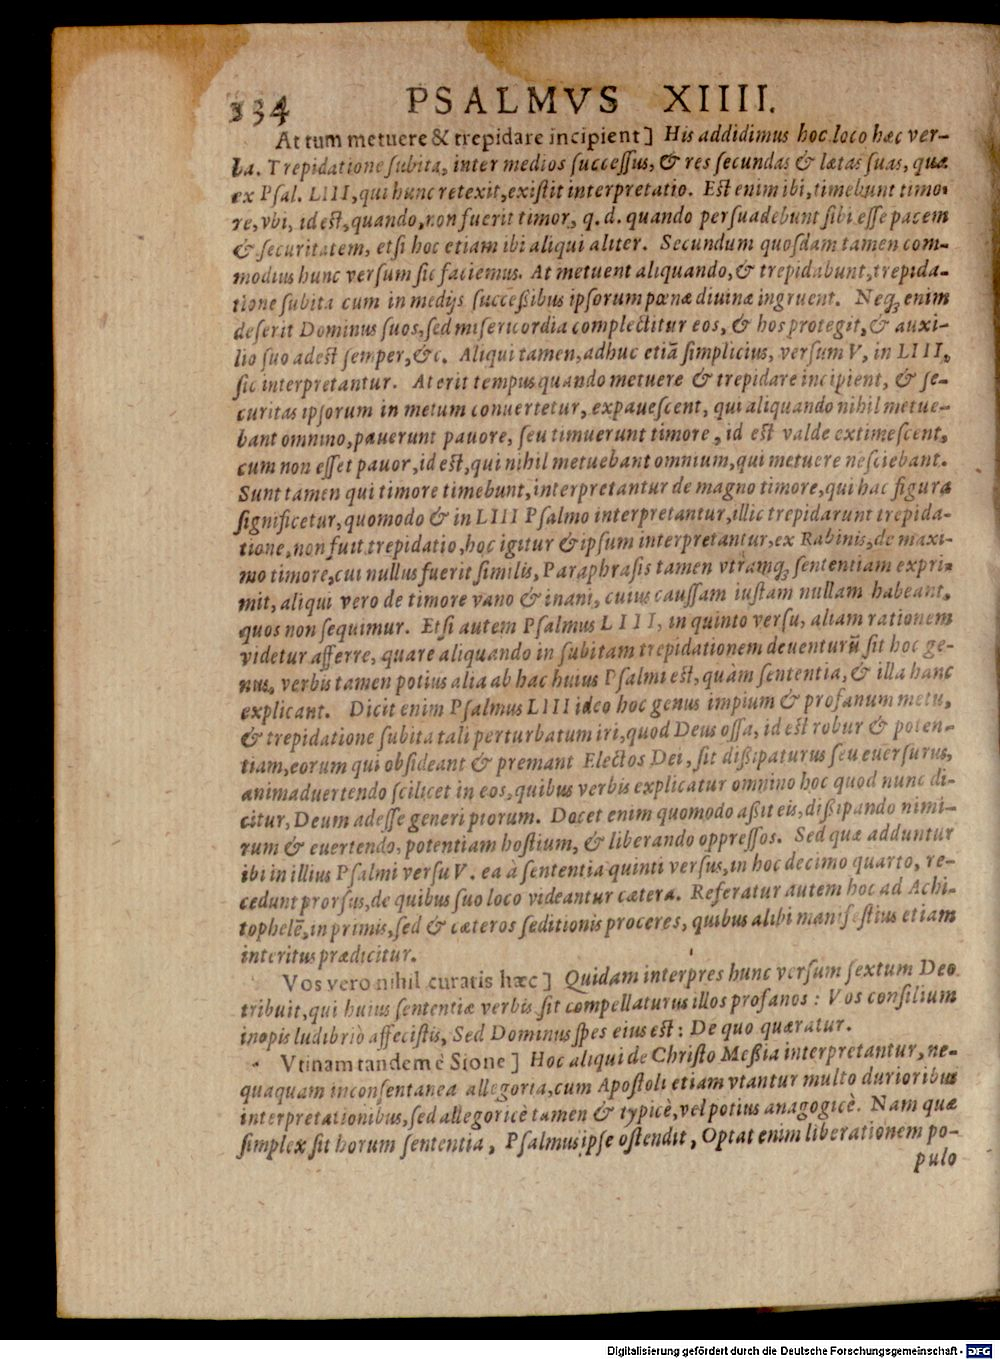 234 PSALMVS XIIII.
At tum metuere & trepidare incipient] His addidimus hoc loco hæc ver-
ba. Trepidatione subita, inter medios successus, & res secundas & lætas suas, quæ
ex Psal. LIII, qui hunc retexit, existit interpretatio. Est enim ibi, timebunt timo-
re, vbi, id est, quando, non fuerit timor, q. d. quando persuadebunt sibi esse pacem
& securitatem, etsi hoc etiam ibi aliqui aliter. Secundum quosdam tamen com-
modius hunc versum sic faciemus. At metuent aliquando, & trepidabunt, trepida-
tione subita cum in medijs successibus ipsorum pœnæ diuinæ ingruent. Neq; enim
deserit Dominus suos, sed misericordia complectitur eos, & hos protegit, & auxi-
lio suo adest semper, &c. Aliqui tamen, adhuc etiã simplicius, versum V, in LIII,
sic interpretantur. At erit tempus quando metuere & trepidare incipient, & se-
curitas ipsorum in metum conuertetur, expauescent, qui aliquando nihil metue-
bant omnino, pauerunt pauore, seu timuerunt timore, id est valde extimescent,
cum non esset pauor, id est, qui nihil metuebant omnium, qui metuere nesciebant.
Sunt tamen qui timore timebunt, interpretantur de magno timore, qui hac figura
significetur, quomodo & in LIII Psalmo interpretantur, illic trepidarunt trepida-
tione, non fuit trepidatio, hoc igitur & ipsum interpretantur, ex Rabinis, de maxi-
mo timore, cui nullus fuerit similis, Paraphrasis tamen vtramq; sententiam expri-
mit, aliqui vero de timore vano & inani, cuius caussam iustam nullam habeant,
quos non sequimur. Etsi autem Psalmus LIII, in quinto versu, aliam rationem
videtur afferre, quare aliquando in subitam trepidationem deuenturũ sit hoc ge-
nus, verbis tamen potius alia ab hac huius Psalmi est, quàm sententia, & illa hanc
explicant. Dicit enim Psalmus LIII ideo hoc genus impium & profanum metu,
& trepidatione subita tali perturbatum iri, quod Deus ossa, id est robur & poten-
tiam, eorum qui obsideant & premant Electos Dei, sit dissipaturus seu euersurus,
animaduertendo scilicet in eos, quibus verbis explicatur omnino hoc quod nunc di-
citur, Deum adesse generi piorum. Docet enim quomodo assit eis, dissipando nimi-
rum & euertendo, potentiam hostium, & liberando oppressos. Sed quæ adduntur
ibi in illius Psalmi versu V. ea à sententia quinti versus, in hoc decimo quarto, re-
cedunt prorsus, de quibus suo loco videantur cætera. Referatur autem hoc ad Achi-
tophelẽ, in primis, sed & cæteros seditionis proceres, quibus alibi manifestius etiam
interitus prædicitur.
Vos vero nihil curatis hæc] Quidam interpres hunc versum sextum Deo
tribuit, qui huius sententiæ verbis sit compellaturus illos profanos: Vos consilium
inopis ludibriò affecistis, Sed Dominus spes eius est: De quo quæratur.
Vtinam tandem è Sione] Hoc aliqui de Christo Messia interpretantur, ne-
quaquam inconsentanea allegoria, cum Apostoli etiam vtantur multo durioribus
interpretationibus, sed allegoricè tamen & typicè, vel potius anagogicè. Nam quæ
simplex sit horum sententia, Psalmus ipse ostendit, Optat enim liberationem po-
pulo
Digitalisierung gefördert durch die Deutsche Forschungsgemeinschaft - DFG